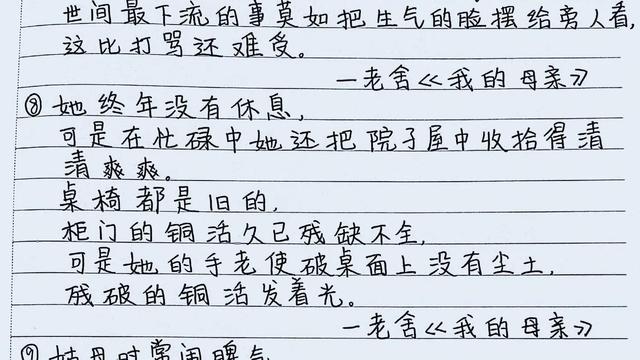 世间最下流的事莫如把生气的脸摆给旁人看,
这比打骂还难受。
—老舍《我的母亲》
⑧她终年没有休息,
可是在忙碌中她还把院子屋中收拾得清
清爽爽。
桌椅都是旧的,
柜门的铜活久已残缺不全,
可是她的手老使破桌面上没有尘土,
残破的铜活发着光。
—老舍《我的母亲》
⑨姑母时常闹脾气